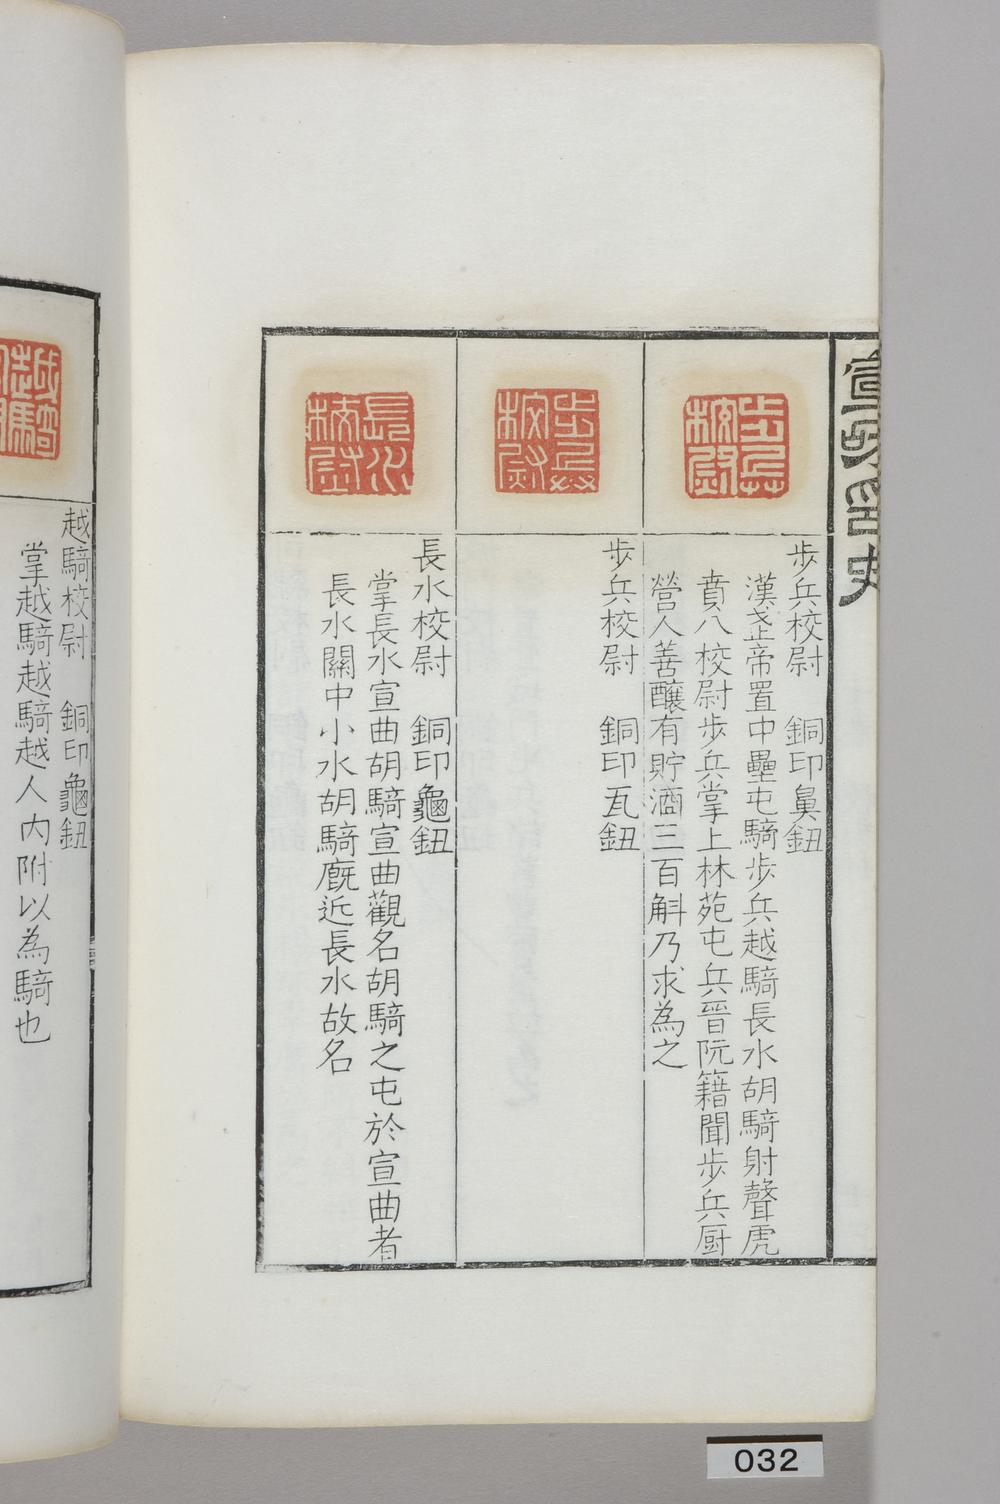 宣和印史
步兵校尉
步兵校尉 銅印鼻鈕
漢武帝置中壘屯騎步兵越騎長水胡騎射聲虎
賁八校尉步兵掌上林苑屯兵晉阮籍聞步兵厨
營人善釀有貯酒三百斛乃求為之
步兵校尉
步兵校尉 銅印瓦鈕
長水校尉
長水校尉 銅印龜鈕
掌長水宣曲胡騎宣曲觀名胡騎之屯於宣曲者
長水關中小水胡騎廐近長水故名
越騎
越騎校尉 銅印龜鈕
掌越騎越騎越人內附以為騎也
032